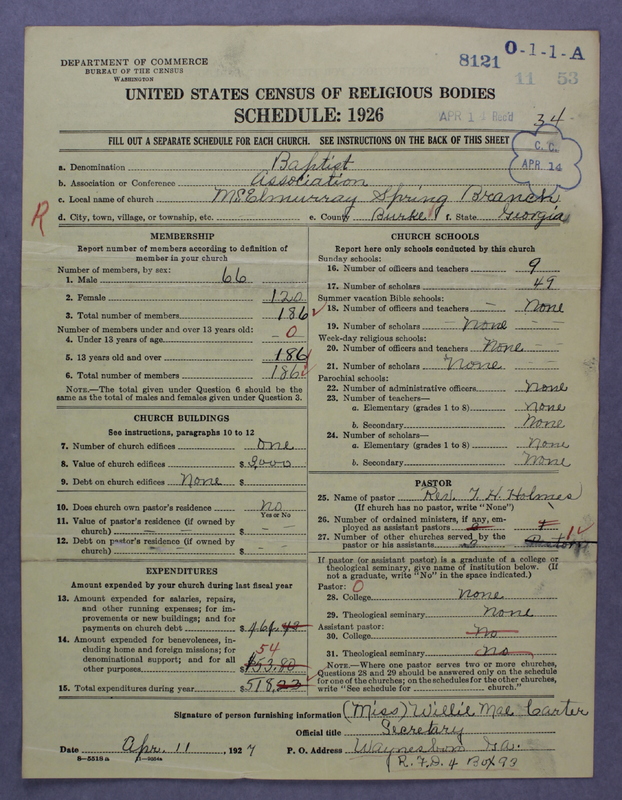 DEPARTMENT OF COMMERCE
BUREAU OF THE CENSUS
WASHINGTON
8121 O-1-1-A
11 53
UNITED STATES CENSUS OF RELIGIOUS BODIES
SCHEDULE: 1926
APR 14 Rec'd 34
FILL OUT A SEPARATE SCHEDULE FOR EACH CHURCH. SEE INSTRUCTIONS ON THE BACK OF THIS SHEET
C. C.
APR. 14
a. Denomination Baptist
b. Association or Conference Association
c. Local name of church McElmurray Spring Branch
R
d. City, town, village, or township, etc. e. County Burke f. State Georgia
MEMBERSHIP
Report number of members according to definition of
member in your church
Number of members, by sex:
1. Male 66
2. Female 120
3. Total number of members 186
Number of members under and over 13 years old:
4. Under 13 years of age 0
5. 13 years old and over 186
6. Total number of members 186
NOTE.—The total given under Question 6 should be the
same as the total of males and females given under Question 3.
CHURCH BUILDINGS
See instructions, paragraphs 10 to 12
7. Number of church edifices one
8. Value of church edifices $ 2000
9. Debt on church edifices None $
10. Does church own pastor's residence No
Yes or No
11. Value of pastor's residence (if owned by
church) $
12. Debt on pastor's residence (if owned by
church) $
EXPENDITURES
Amount expended by your church during last fiscal year
13. Amount expended for salaries, repairs,
and other running expenses; for im-
provements or new buildings; and for
payments on church debt $ 464.42
14. Amount expended for benevolences, in-
cluding home and foreign missions; for
denominational support; and for all
other purposes 54 $53.80
15. Total expenditures during year $518.22
CHURCH SCHOOLS
Report here only schools conducted by this church
Sunday schools:
16. Number of officers and teachers 9
17. Number of scholars 49
Summer vacation Bible schools:
18. Number of officers and teachers None
19. Number of scholars None
Week-day religious schools:
20. Number of officers and teachers None
21. Number of scholars None
Parochial schools:
22. Number of administrative officers None
23. Number of teachers—
a. Elementary (grades 1 to 8) None
b. Secondary None
24. Number of scholars—
a. Elementary (grades 1 to 8) None
b. Secondary None
PASTOR
25. Name of pastor Rev. T. H. Holmes
(If church has no pastor, write "None")
26. Number of ordained ministers, if any, em-
ployed as assistant pastors
27. Number of other churches served by the
pastor or his assistants 1
If pastor (or assistant pastor) is a graduate of a college or
theological seminary, give name of institution below. (If
not a graduate, write "No" in the space indicated.)
Pastor: 0
28. College none
29. Theological seminary None
Assistant pastor:
30. College No
31. Theological seminary No
NOTE.—Where one pastor serves two or more churches,
Questions 28 and 29 should be answered only on the schedule
for one of the churches; on the schedules for the other churches,
write "See schedule for church."
Signature of person furnishing information (Miss) Willie Mae Carter
Official title Secretary
Date Apr. 11, 1927 P. O. Address Waynesboro Ga.
8—5518 a
R. F. D. 4 Box 93